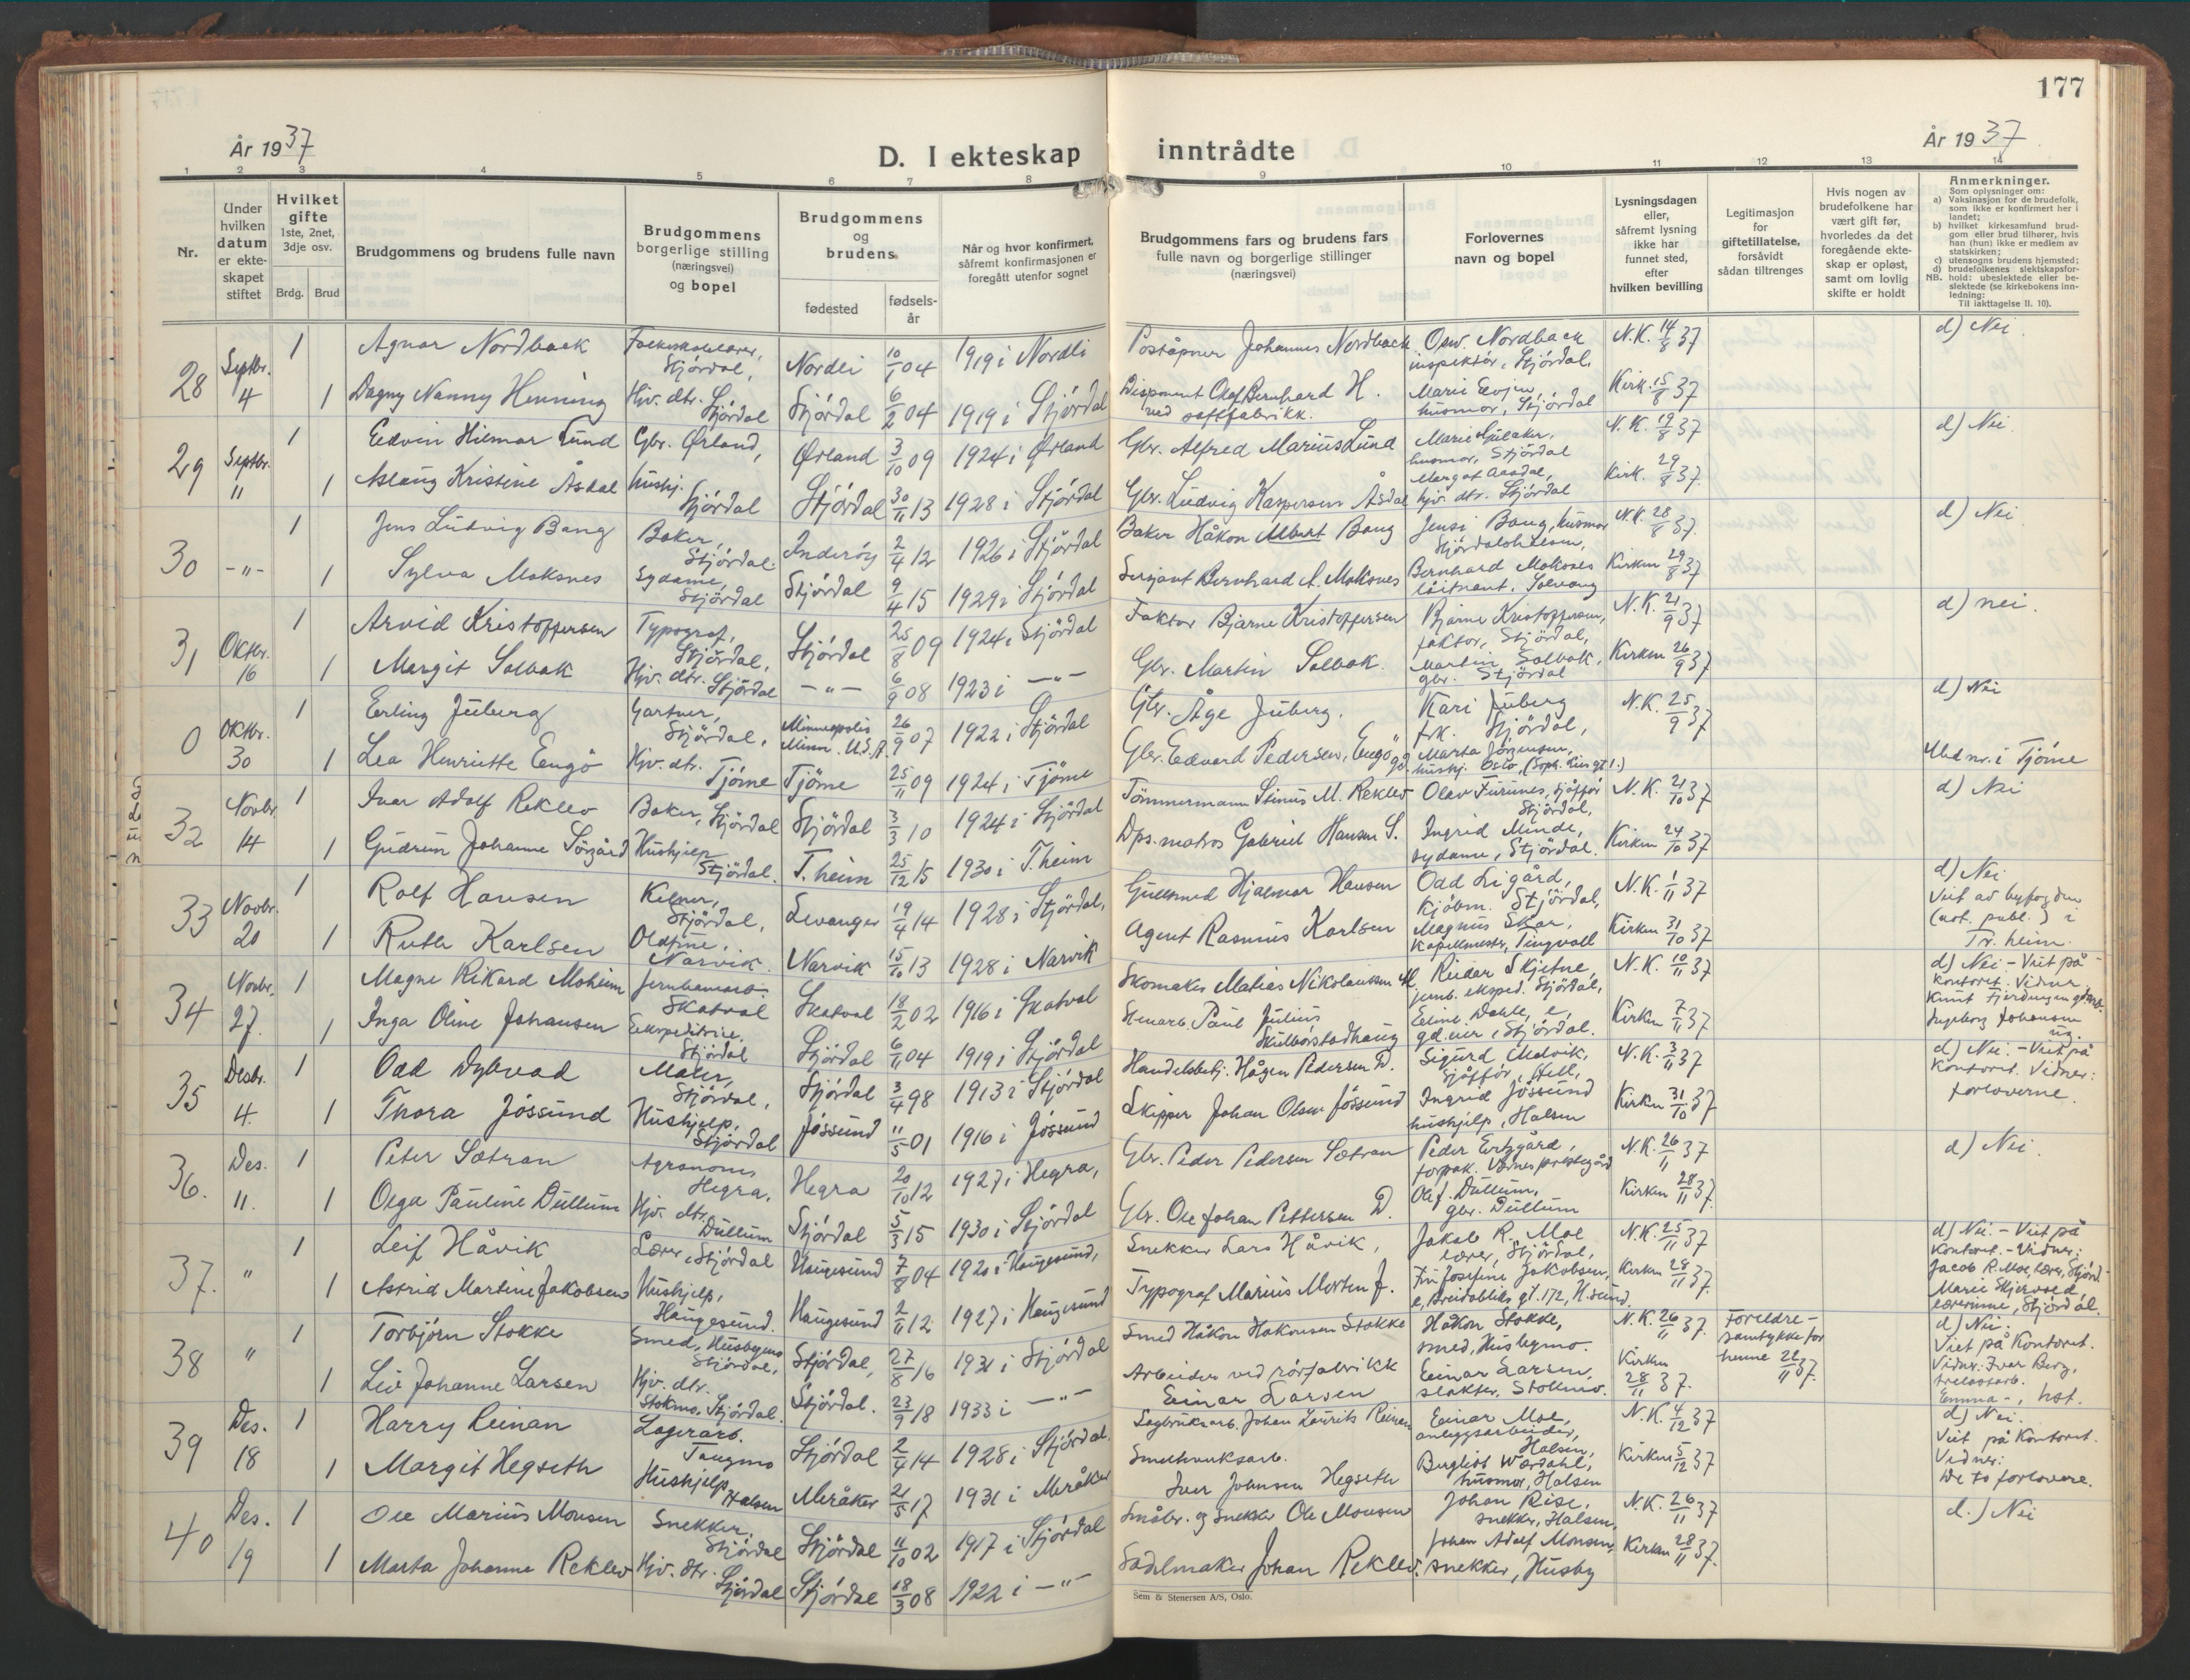 177
År 1937
D. I ekteskap inntrådte
År 1937
1 2 3 4 5 6 7 8 9 10 11 12 13 14
Nr.
Under hvilken datum er ekteskapet stiftet
Hvilket gifte 1ste, 2net, 3dje osv.
Brdg. Brud
Brudgommens og brudens fulle navn
Brudgommens borgerlige stilling (næringsvei) og bopel
Brudgommens og brudens
fødested
fødselsår
Når og hvor konfirmert, såfremt konfirmasjonen er foregått utenfor sognet
Brudgommens fars og brudens fars fulle navn og borgerlige stillinger (næringsvei)
Forlovernes navn og bopel
Lysningsdagen eller, såfremt lysning ikke har funnet sted, efter hvilken bevilling
Legitimasjon for giftetillatelse, forsåvidt sådan tiltrenges
Hvis nogen av brudefolkene har vært gift før, hvorledes da det foregående ekteskap er opløst, samt om lovlig skifte er holdt
Anmerkninger.
Som oplysninger om:
a) Vaksinasjon for de brudefolk, som ikke er konfirmert her i landet;
b) hvilket kirkesamfund brudgom eller brud tilhører, hvis han (hun) ikke er medlem av statskirken;
c) utensogns brudens hjemsted;
d) brudefolkenes slektskapsforhold: ubeslektede eller beslektede (se kirkebokens innledning:
NB. Til iakttagelse II. 10).
28 Septbr. 4
1 Agnar Nordback Folkeskolelærer, Stjørdal, Nordli 10/1 04 1919 i Nordli Poståpner Johannes Nordback Osv. Nordback inspektør, Stjørdal. N.K. 14/8 37 d) Nei.
1 Dagny Nanny Henning Hjv. dtr. Stjørdal Stjørdal 6/2 04 1919 i Stjørdal Disponent Olaf Bernhard H. ved saftfabrikk. Marie Evjen, husmor, Stjørdal Kirk. 15/8 37
29 Septbr. 11
1 Edvin Hilmar Lund Gbr. Ørland, Ørland 3/10 09 1924 i Ørland Gbr. Alfred Marius Lund Marie husmor, Stjørdal N.K. 19/8 37 d) Nei
1 Aslaug Kristine Åsdal hushj. Stjørdal Stjørdal 30/11 13 1928 i Stjørdal Gbr. Ludvig Kaspersen Åsdal Margot Aasdal, hjv. dtr. Stjørdal Kirk. 29/8 37.
30 -"-
1 Jens Ludvig Bang Baker, Stjørdal. Inderøy 2/4 12 1926 i Stjørdal Baker Håkon Albert Bang Jensi Bang, husmor Stjørdalshalsen, N.K. 28/8 37. d) Nei
1 Sylva Moksnes Sydame, Stjørdal Stjørdal 9/4 15 1929 i Stjørdal Sersjant Bernhard A. Moksnes Bernhard Moksnes løitnant, Solvang Kirken 29/8 37
31 Oktbr. 16
1 Arvid Kristoffersen Typograf, Stjørdal, Stjørdal 25/8 09 1924 i Stjørdal Faktor Bjarne Kristoffersen Bjarne Kristoffersen, faktor, Stjørdal, N.K. 21/9 37 d) nei.
1 Margit Solbak Hjv. dtr. Stjørdal -"- 6/9 08 1923 i -"- Gbr. Martin Solbak. Martin Solbak, gbr. Stjørdal Kirken 26/9 37
0 Oktbr. 30
1 Erling Juberg Gartner, Stjørdal, Minneapolis Minn. U.S.A. 26/9 07 1922 i Stjørdal Gbr. Åge Juberg. Kari Juberg frk. Stjørdal, N.K. 25/9 37 d) Nei
1 Lea Henriette Engø Hjv. dtr. Tjøme Tjøme 25/11 09 1924 i Tjøme Gbr. Edvard Pedersen, Engø gd. Marta Jørgensen, hushj. Oslo, Utd nr. i Tjøme
32 Novbr. 14
1 Ivar Adolf Reklev Baker, Stjørdal Stjørdal 3/3 10 1924 i Stjørdal Tømmermann Stinus M. Reklev Olav Furunes, sjåfør Stjørdal, N.K. 21/10 37 d) Nei
1 Gudrun Johanne Sørgård Hushjelp Stjørdal. T.heim 25/12 15 1930 i T.heim Dps.matros Gabriel Hansen S. Ingrid Minde, sydame, Stjørdal. Kirken 24/10 37
33 Novbr. 20
1 Rolf Hansen Kelner, Stjørdal, Levanger 19/4 14 1928 i Stjørdal, Gullsmed Hjalmar Hansen Odd Ligård, Kjøbm. Stjørdal, N.K. 1/11 37 d) Nei Viet av byfogden (not. publ.) i Tr. heim.
1 Ruth Karlsen Oldfrue, Narvik. Narvik 15/10 13 1928 i Narvik Agent Rasmus Karlsen Magnus Skar, Kapellmester, Tingvoll Kirken 31/10 37
34 Novbr. 27.
1 Magne Rikard Moheim Jernbanearb. Skatval Skatval 18/2 02 1916 i Skatval Skomaker Matias Nikolaussen M. Reidar Skjetne, jernb. eksped. Stjørdal, N.K. 10/11 37 d) Nei - Viet på kontoret. Vidner Knut Fjerdingen Ingeborg Johansen
1 Inga Oline Johansen Ekspeditrise, Stjørdal Stjørdal 6/11 04 1919 i Stjørdal Stenarb. Paul Julius Skulbørstadhaug Eline Dahle, gd.eier, Stjørdal. Kirken 7/11 37
35 Desbr. 4.
1 Odd Dybvad Maler, Stjørdal, Stjørdal 3/4 98 1913 i Stjørdal Handelsbetj. Hågen Pedersen D. Sigurd Melvik, Sjåfør, Hell, N.K. 3/11 37 d) Nei. - Viet på Kontoret. Vidner: forloverne.
1 Thora Jøssund Hushjelp, Stjørdal Jøssund 11/5 01 1916 i Jøssund Skipper Johan Olsen Jøssund Ingrid Jøssund hushjelp, Halsen Kirken 31/10 37
36. Des. 11.
1 Peter Sætran Agronom, Hegra, Hegra 20/10 12 1927 i Hegra, Gbr. Peder Pedersen Sætran Peder Ertzgård, forpak. Værnes prestegård N.K. 26/11 37 d) Nei.
1 Olga Pauline Dullum Hjv. dtr. Dullum Stjørdal 5/3 15 1930 i Stjørdal Gbr. Ole Johan Pettersen D. Olef. Dullum, gbr. Dullum Kirken 28/11 37.
37. "
1 Leif Håvik Lærer, Stjørdal Haugesund 7/8 04 1920 i Haugesund, Snekker Lars Håvik, Jakob R. Moe lærer, Stjørdal, N.K. 25/11 37 d) Nei. - Viet på Kontoret. - Vidner: Jacob R. Moe, lærer, Stjørd. Marie Skjervold, lærerinne, Stjørdal.
1 Astrid Martine Jakobsen Hushjelp, Haugesund. Haugesund 2/11 12 1927 i Haugesund Typograf Marius Morten J. Fru Josefine Jakobsen, Breidabliks gt. 172, H.sund. Kirken 28/11 37.
38 "
1 Torbjørn Stokke Smed, Husbymo Stjørdal, Stjørdal, 27/8 16 1931 i Stjørdal Smed Håkon Hakonsen Stokke Håkon Stokke, smed, Husbymo. N.K. 26/11 37. Foreldresamtykke for henne 22/11 37. d) Nei. Viet på Kontoret. Vidner: Ivar Berg, trelastarb. Emma -,
1 Liv Johanne Larsen Hjv. dtr. Stokmo, Stjørdal. Stjørdal. 23/9 18 1933 i -"- Arbeider ved rørfabrikk Einar Larsen Einar Larsen, slakter, Stokmo. Kirken 28/11 37.
39 Des. 18
1 Harry Reinan Lagerarb. Tangmo Stjørdal 2/4 14 1928 i Stjørdal. Sagbruksarb. Johan Laurits Reinan Einar Moe, anleggsarbeider, Halsen, N.K. 4/12 37 d) Nei. Viet på Kontoret. Vidner: De to forlovere.
1 Margit Hegseth Hushjelp Halsen Meråker 21/5 17 1931 i Meråker Smelteverksarb. Iver Johnsen Hegseth Bergliot Værdahl, husmor, Halsen Kirken 5/12 37
40 Des. 19
1 Ole Marius Monsen Snekker. Stjørdal Stjørdal 11/10 02 1917 i Stjørdal Småbr. og Snekker Ole Monsen Johan Rise, snekker, Halsen, N.K. 26/11 37 d.) Nei
1 Marta Johanne Reklev Hjv. dtr. Stjørdal Stjørdal 18/3 08 1922 i -"- Sadelmaker Johan Reklev. Johan Adolf Monsen, snekker, Husby Kirken 28/11 37.
Sem & Stenersen A/S, Oslo.